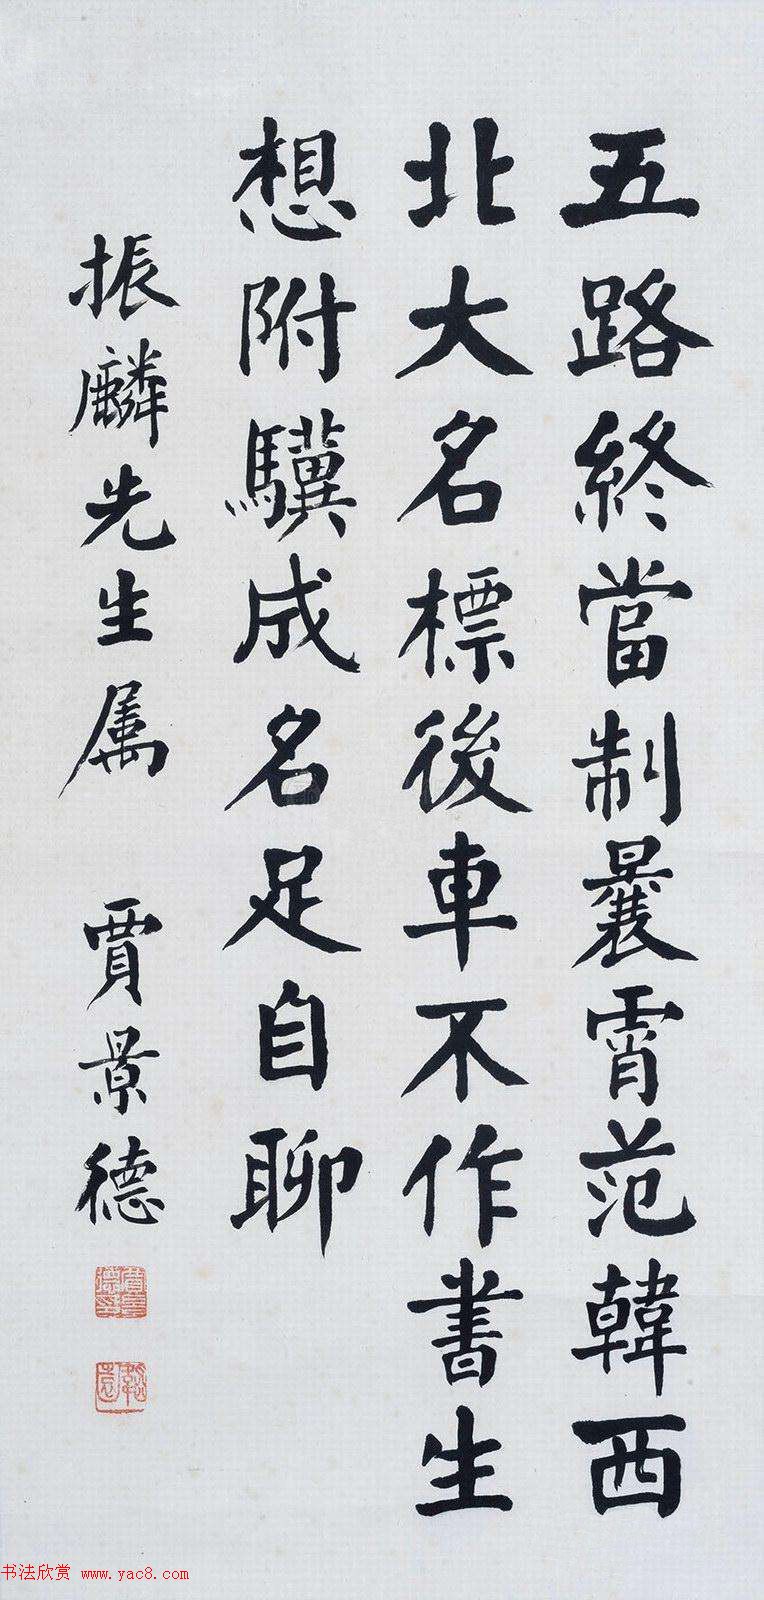 五路終當制曩霄范韓西
北大名標後車不作書生
想附驥成名足自聊
振麟先生属 賈景德
书法欣赏 www.yac8.com